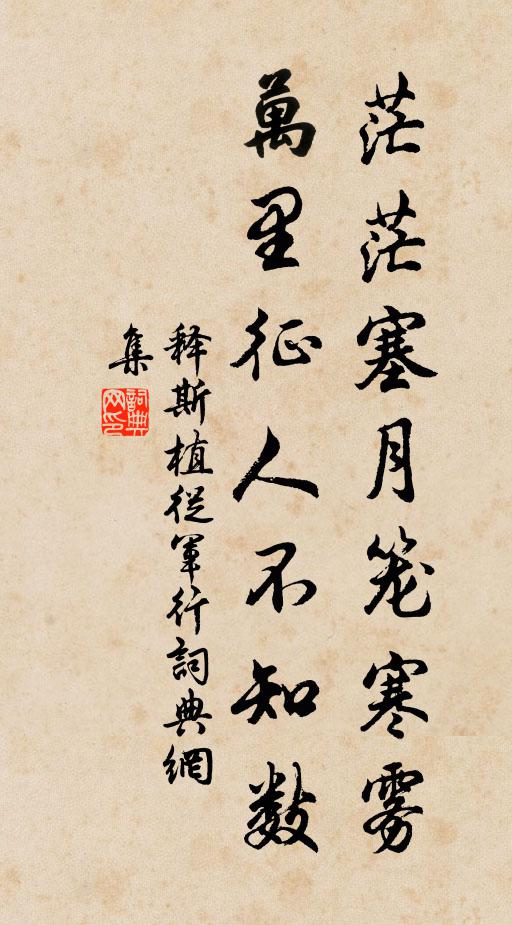 茫茫塞月笼寒雾
萬里征人不知数
释斯植從軍行詞典網
集
詞典网印